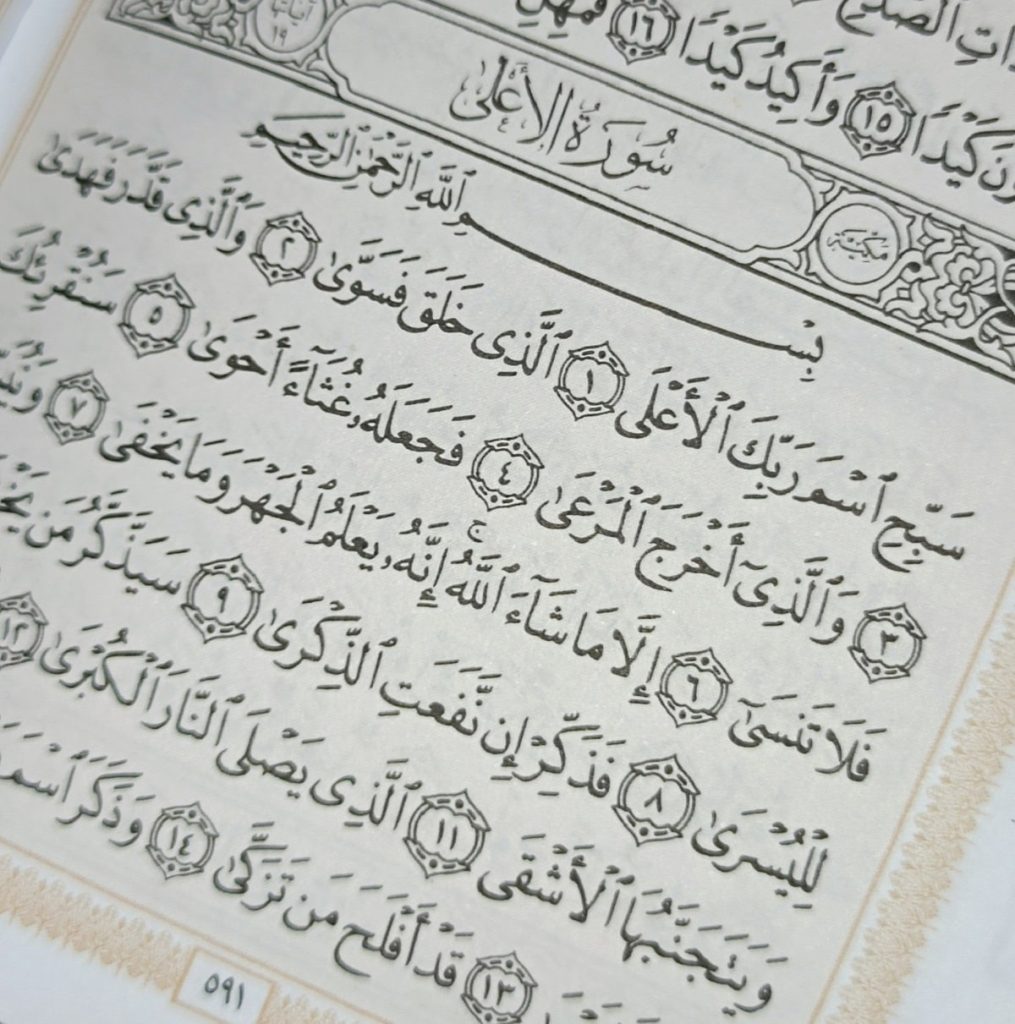 ٱلصَّلْبِ
كَيْدًا ١٥ وَأَكِيدُ كَيْدًا ١٦ فَمَهِّلِ
سُورَةُ الأَعْلَىٰ
١٩
مكية
بِسْمِ ٱللَّهِ ٱلرَّحْمَٰنِ ٱلرَّحِيمِ
سَبِّحِ ٱسْمَ رَبِّكَ ٱلْأَعْلَى ١ ٱلَّذِى خَلَقَ فَسَوَّىٰ ٢ وَٱلَّذِى قَدَّرَ فَهَدَىٰ
٣ وَٱلَّذِىٓ أَخْرَجَ ٱلْمَرْعَىٰ ٤ فَجَعَلَهُۥ غُثَآءً أَحْوَىٰ ٥ سَنُقْرِئُكَ
فَلَا تَنسَىٰٓ ٦ إِلَّا مَا شَآءَ ٱللَّهُ ۚ إِنَّهُۥ يَعْلَمُ ٱلْجَهْرَ وَمَا يَخْفَىٰ ٧
لِلْيُسْرَىٰ ٨ فَذَكِّرْ إِن نَّفَعَتِ ٱلذِّكْرَىٰ ٩ سَيَذَّكَّرُ مَن
وَيَتَجَنَّبُهَا ٱلْأَشْقَى ١١ ٱلَّذِى يَصْلَى ٱلنَّارَ ٱلْكُبْرَىٰ ١٢
١٣ قَدْ أَفْلَحَ مَن تَزَكَّىٰ ١٤ وَذَكَرَ ٱسْمَ
٥٩١